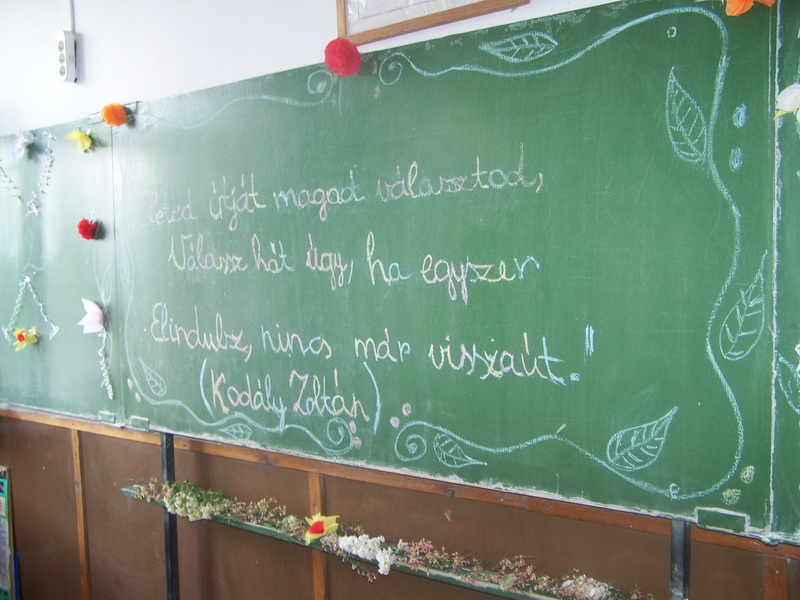 leted útját magad választod,
Válassz hát úgy, ha egyszer
Elindulsz, nincs már visszaút."
(Kodály Zoltán)